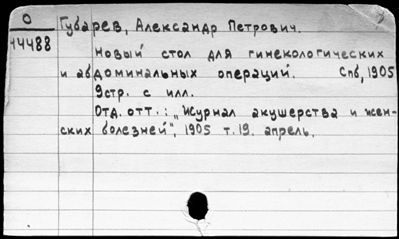 О
14488
Губарев, Александр Петрович.
Новый стол для гинекологических
и абдоминальных операций. Спб, 1905
9стр. с илл.
Отд. отт.: „Журнал акушерства и жен-
ских болезней", 1905 т. 19. апрель.